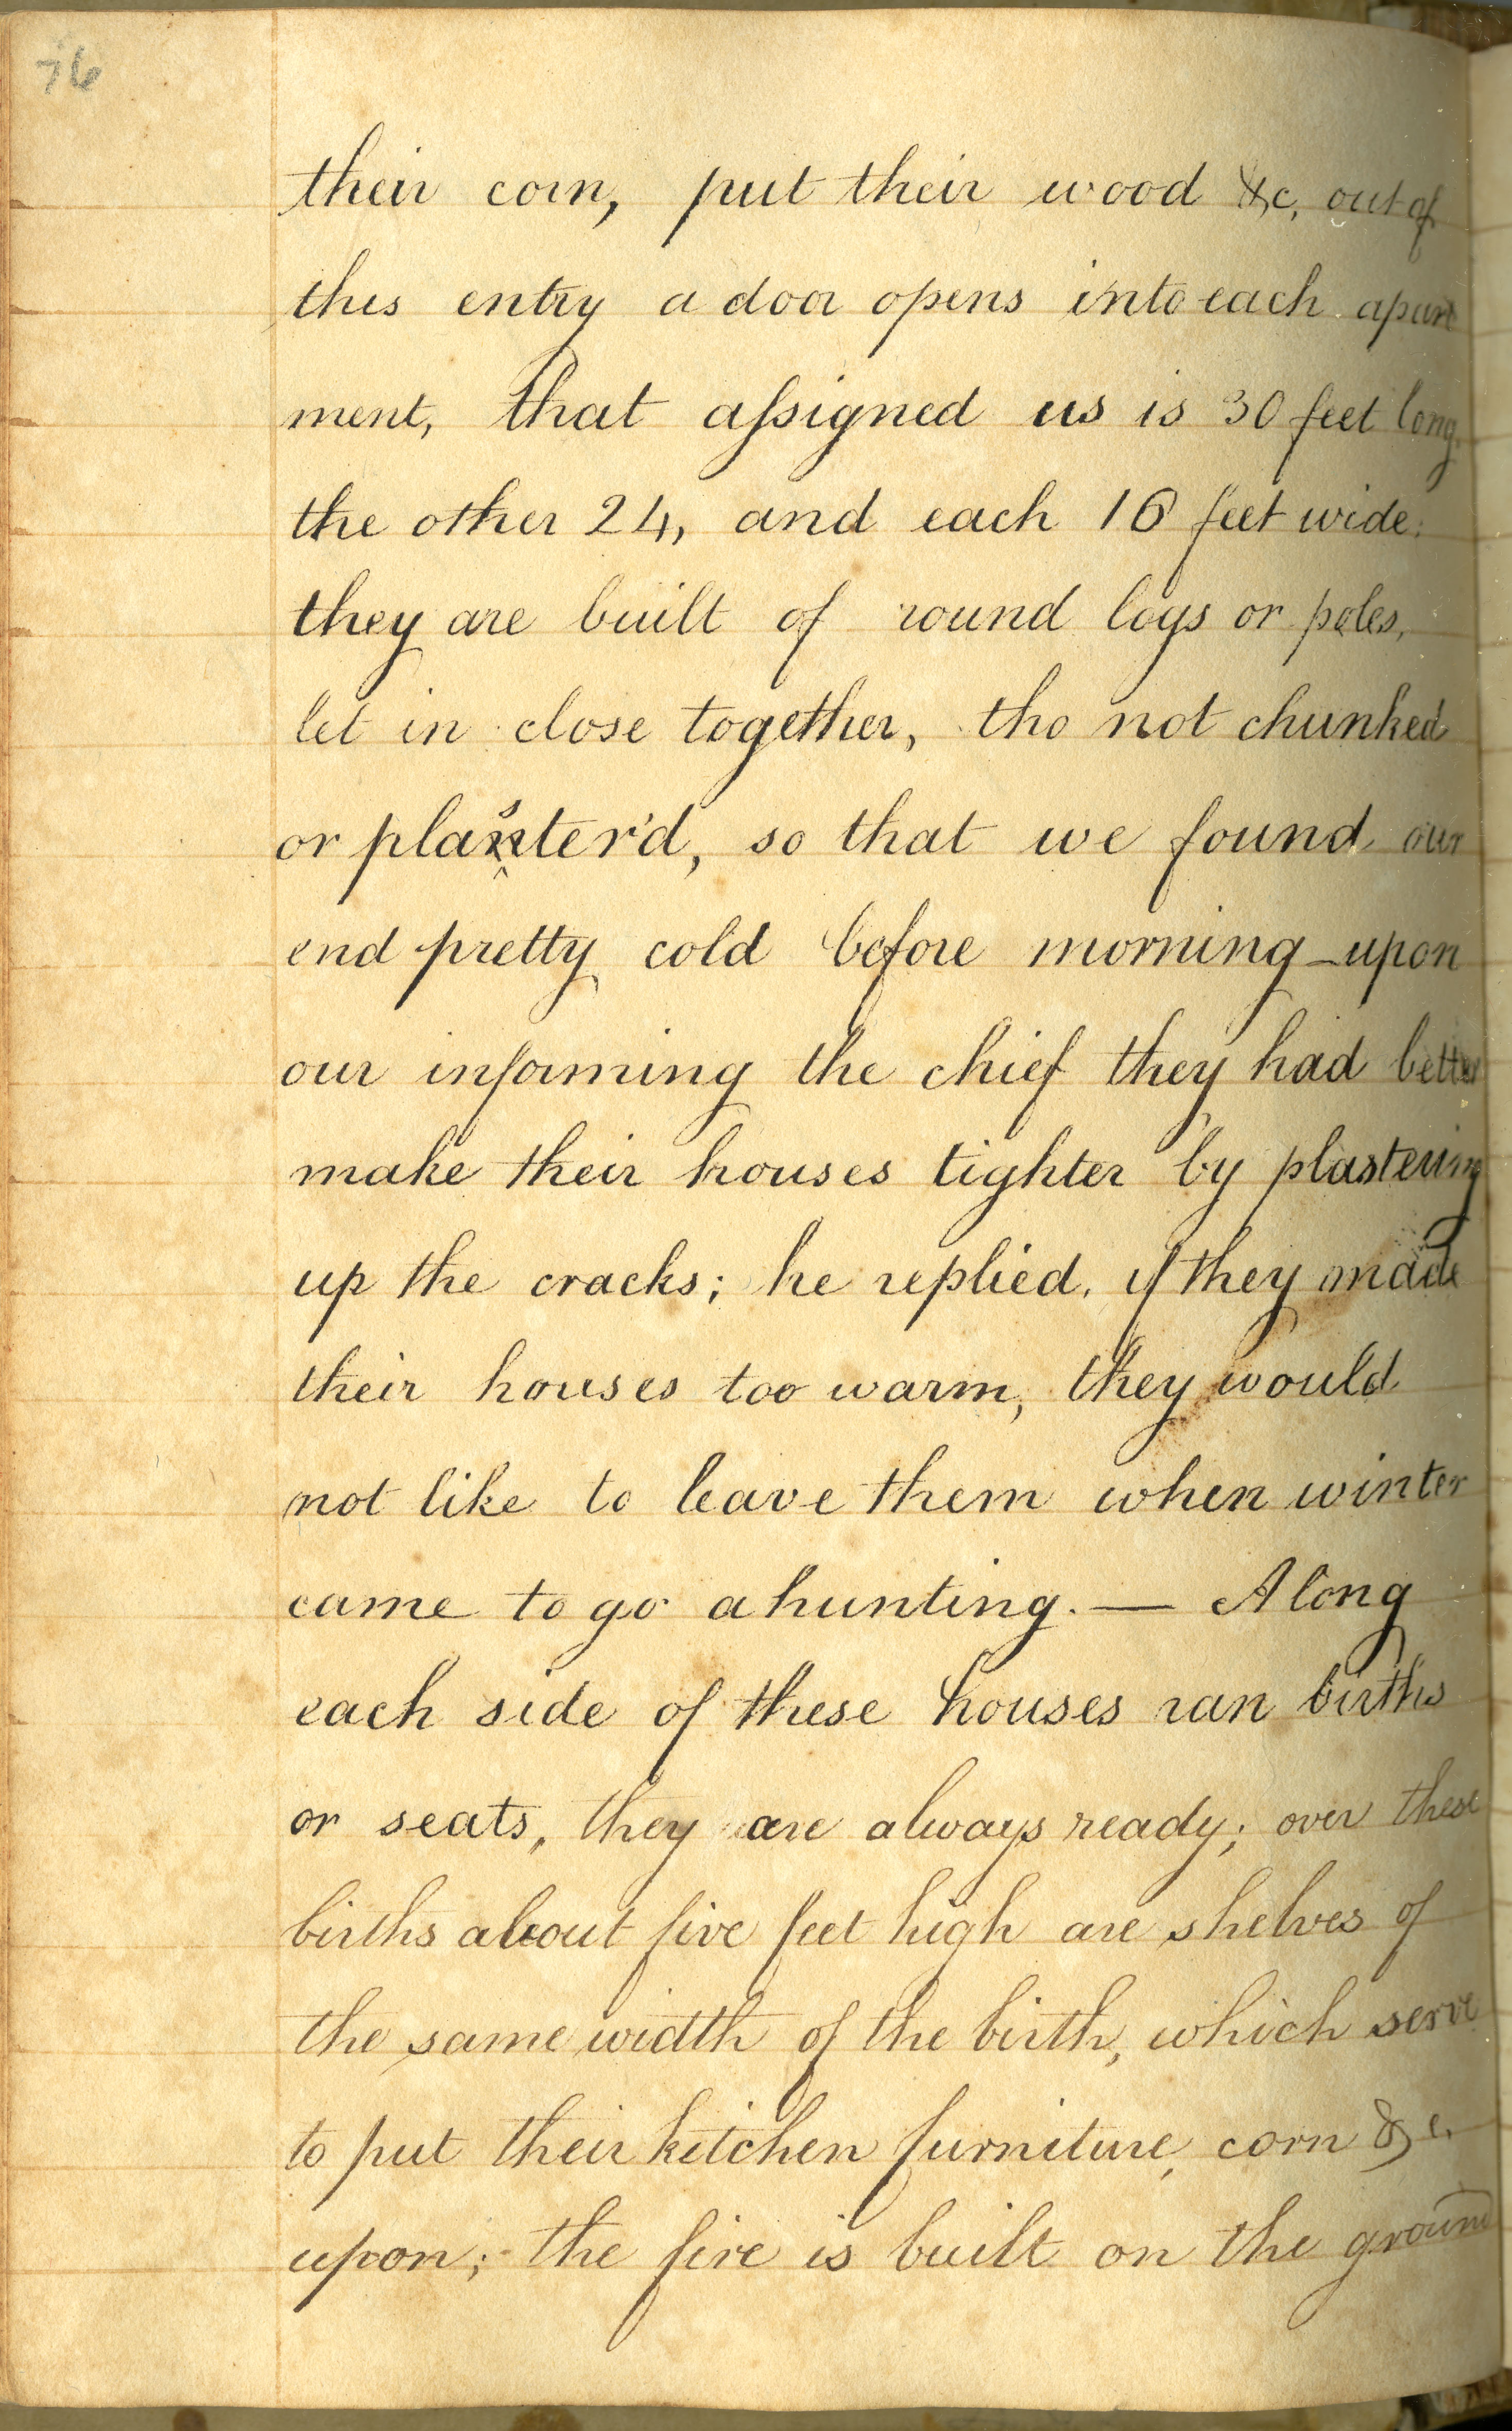 76
their corn, put their wood &c, out of
this entry a door opens into each apart
ment, that assigned us is 30 feet long,
the other 24, and each 16 feet wide:
they are built of round logs or poles,
let in close together, tho not chunked
or plaster'd, so that we found our
end pretty cold before morning - upon
our informing the chief they had better
make their houses tighter by plastering
up the cracks; he replied, if they made
their houses too warm, they would
not like to leave them when winter
came to go a hunting. — Along
each side of these houses ran births
or seats, they are always ready; over these
births about five feet high are shelves of
the same width of the birth, which serve
to put their kitchen furniture, corn &c.
upon; the fire is built on the ground